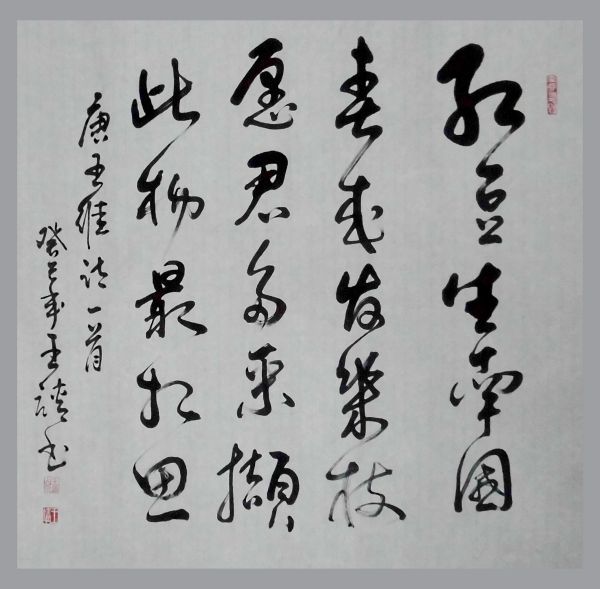 红豆生南國
春来发幾枝
愿君多采擷
此物最相思
唐王維诗一首
癸巳年王书